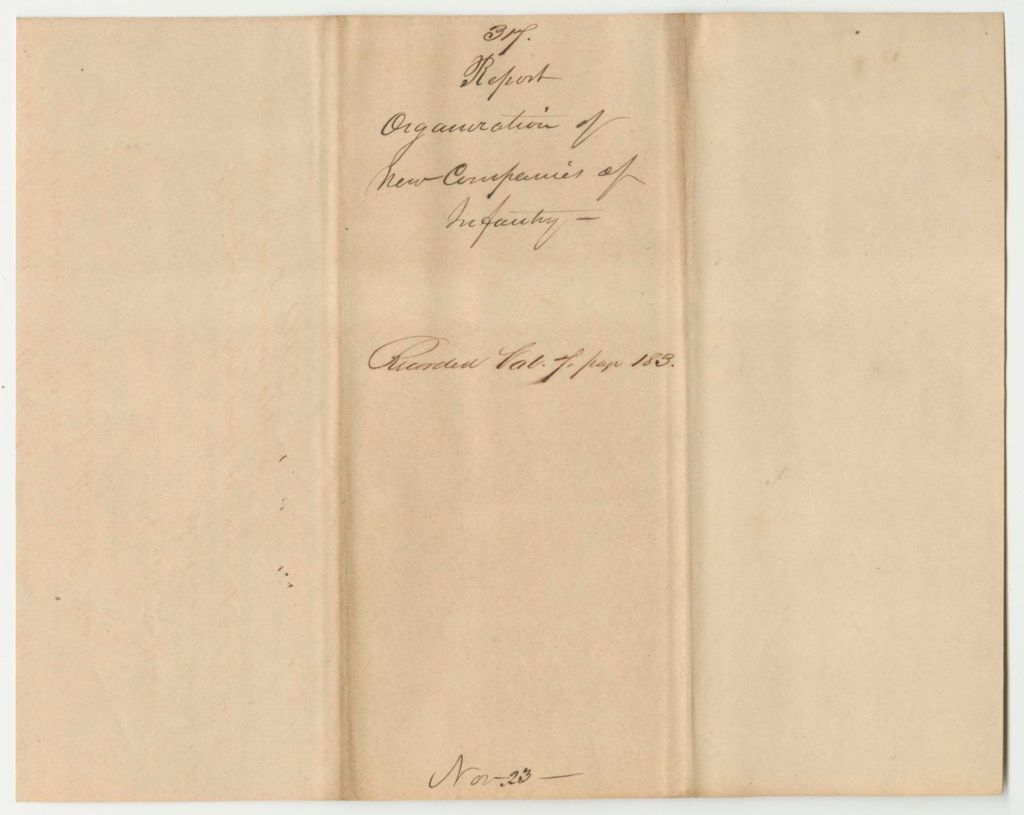 37.
Report
Organization of
New Companies of
Infantry —
Recorded Vol. 7, page 183.
Nov. 23 —